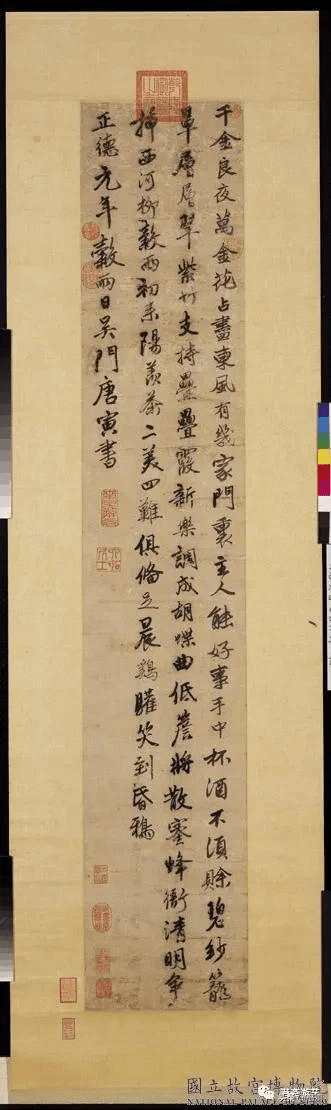 千金良夜萬金花占盡東風有幾家門裏主人能好事手中杯酒不須賒碧紗籠
罩層層翠紫竹支持疊疊霞新樂調成胡蝶曲低簷將散蜜蜂衙清明爭
插西河柳穀雨初來陽羨茶二美四難俱備足晨鷄懽笑到昏鴉
正德元年穀雨日吳門唐寅書
六如居士
國立故宮博物院
NATIONAL PALACE